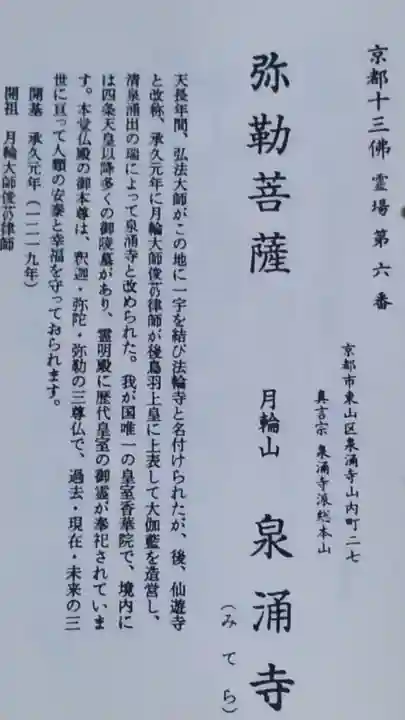 京都十三佛霊場第六番
京都市東山区泉涌寺山内町二七
真言宗 泉涌寺派総本山
弥勒菩薩 月輪山 泉涌寺
(みてら)
天長年間、弘法大師がこの地に一宇を結び法輪寺と名付けられたが、後、仙遊寺
と改称、承久元年に月輪大師俊芿律師が後鳥羽上皇に上表して大伽藍を造営し、
清泉涌出の瑞によって泉涌寺と改められた。我が国唯一の皇室香華院で、境内に
は四条天皇以降多くの御陵墓があり、霊明殿に歴代皇室の御霊が奉祀されていま
す。本堂仏殿の御本尊は、釈迦・弥陀・弥勒の三尊仏で、過去・現在・未来の三
世に亘って人類の安泰と幸福を守っておられます。
開基 承久元年(一二一九年)
開祖 月輪大師俊芿律師